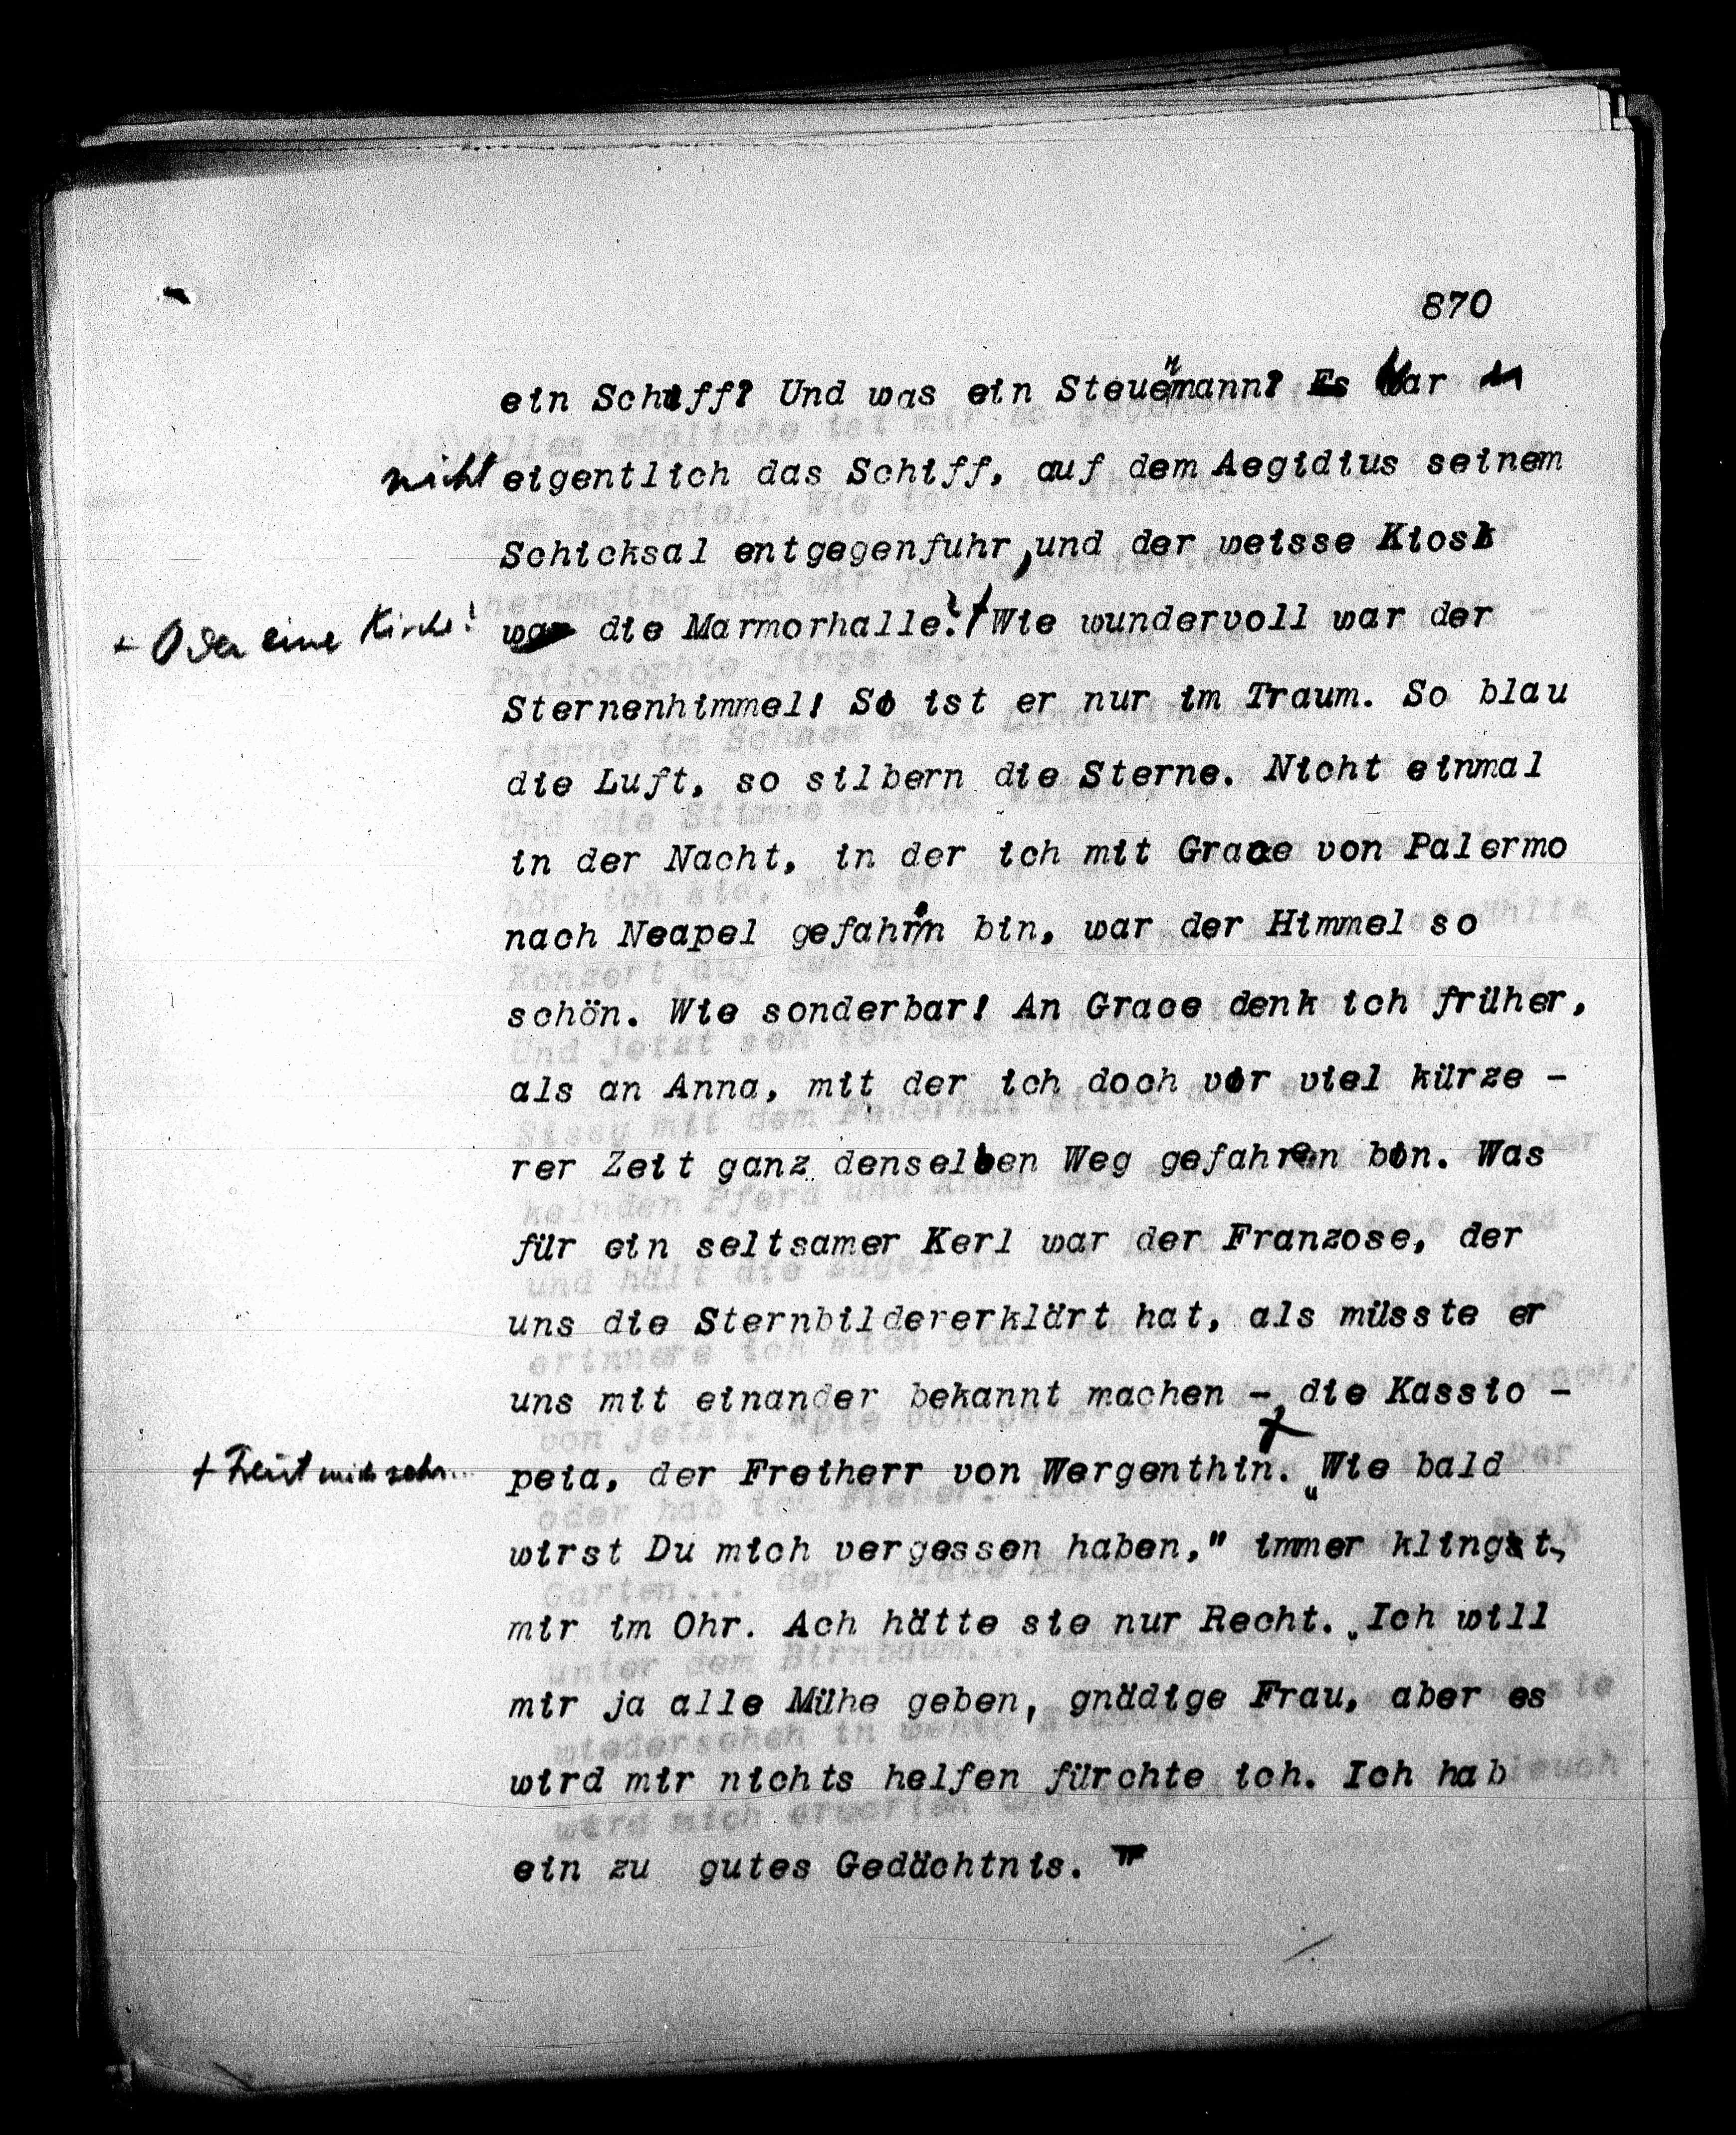 870
ein Schiff? Und was ein Steuermann? Es War
nicht eigentlich das Schiff, auf dem Aegidius seinem
Schicksal entgegenfuhr, und der weisse Kiosk
+ Oder eine Kirche?
war die Marmorhalle? + Wie wundervoll war der
Sternenhimmel! So ist er nur im Traum. So blau
die Luft, so silbern die Sterne. Nicht einmal
in der Nacht, in der ich mit Grace von Palermo
nach Neapel gefahren bin, war der Himmel so
schön. Wie sonderbar! An Grace denk ich früher,
als an Anna, mit der ich doch vor viel kürze -
rer Zeit ganz denselben Weg gefahren bin. Was
für ein seltsamer Kerl war der Franzose, der
uns die Sternbildererklärt hat, als müsste er
uns mit einander bekannt machen -, die Kassio -
+ Freut mich sehr...
peia, der Freiherr von Wergenthin. + „Wie bald
wirst Du mich vergessen haben," immer klingt
mir im Ohr. Ach hätte sie nur Recht. Ich will
mir ja alle Mühe geben, gnädige Frau, aber es
wird mir nichts helfen fürchte ich. Ich hab
ein zu gutes Gedächtnis.